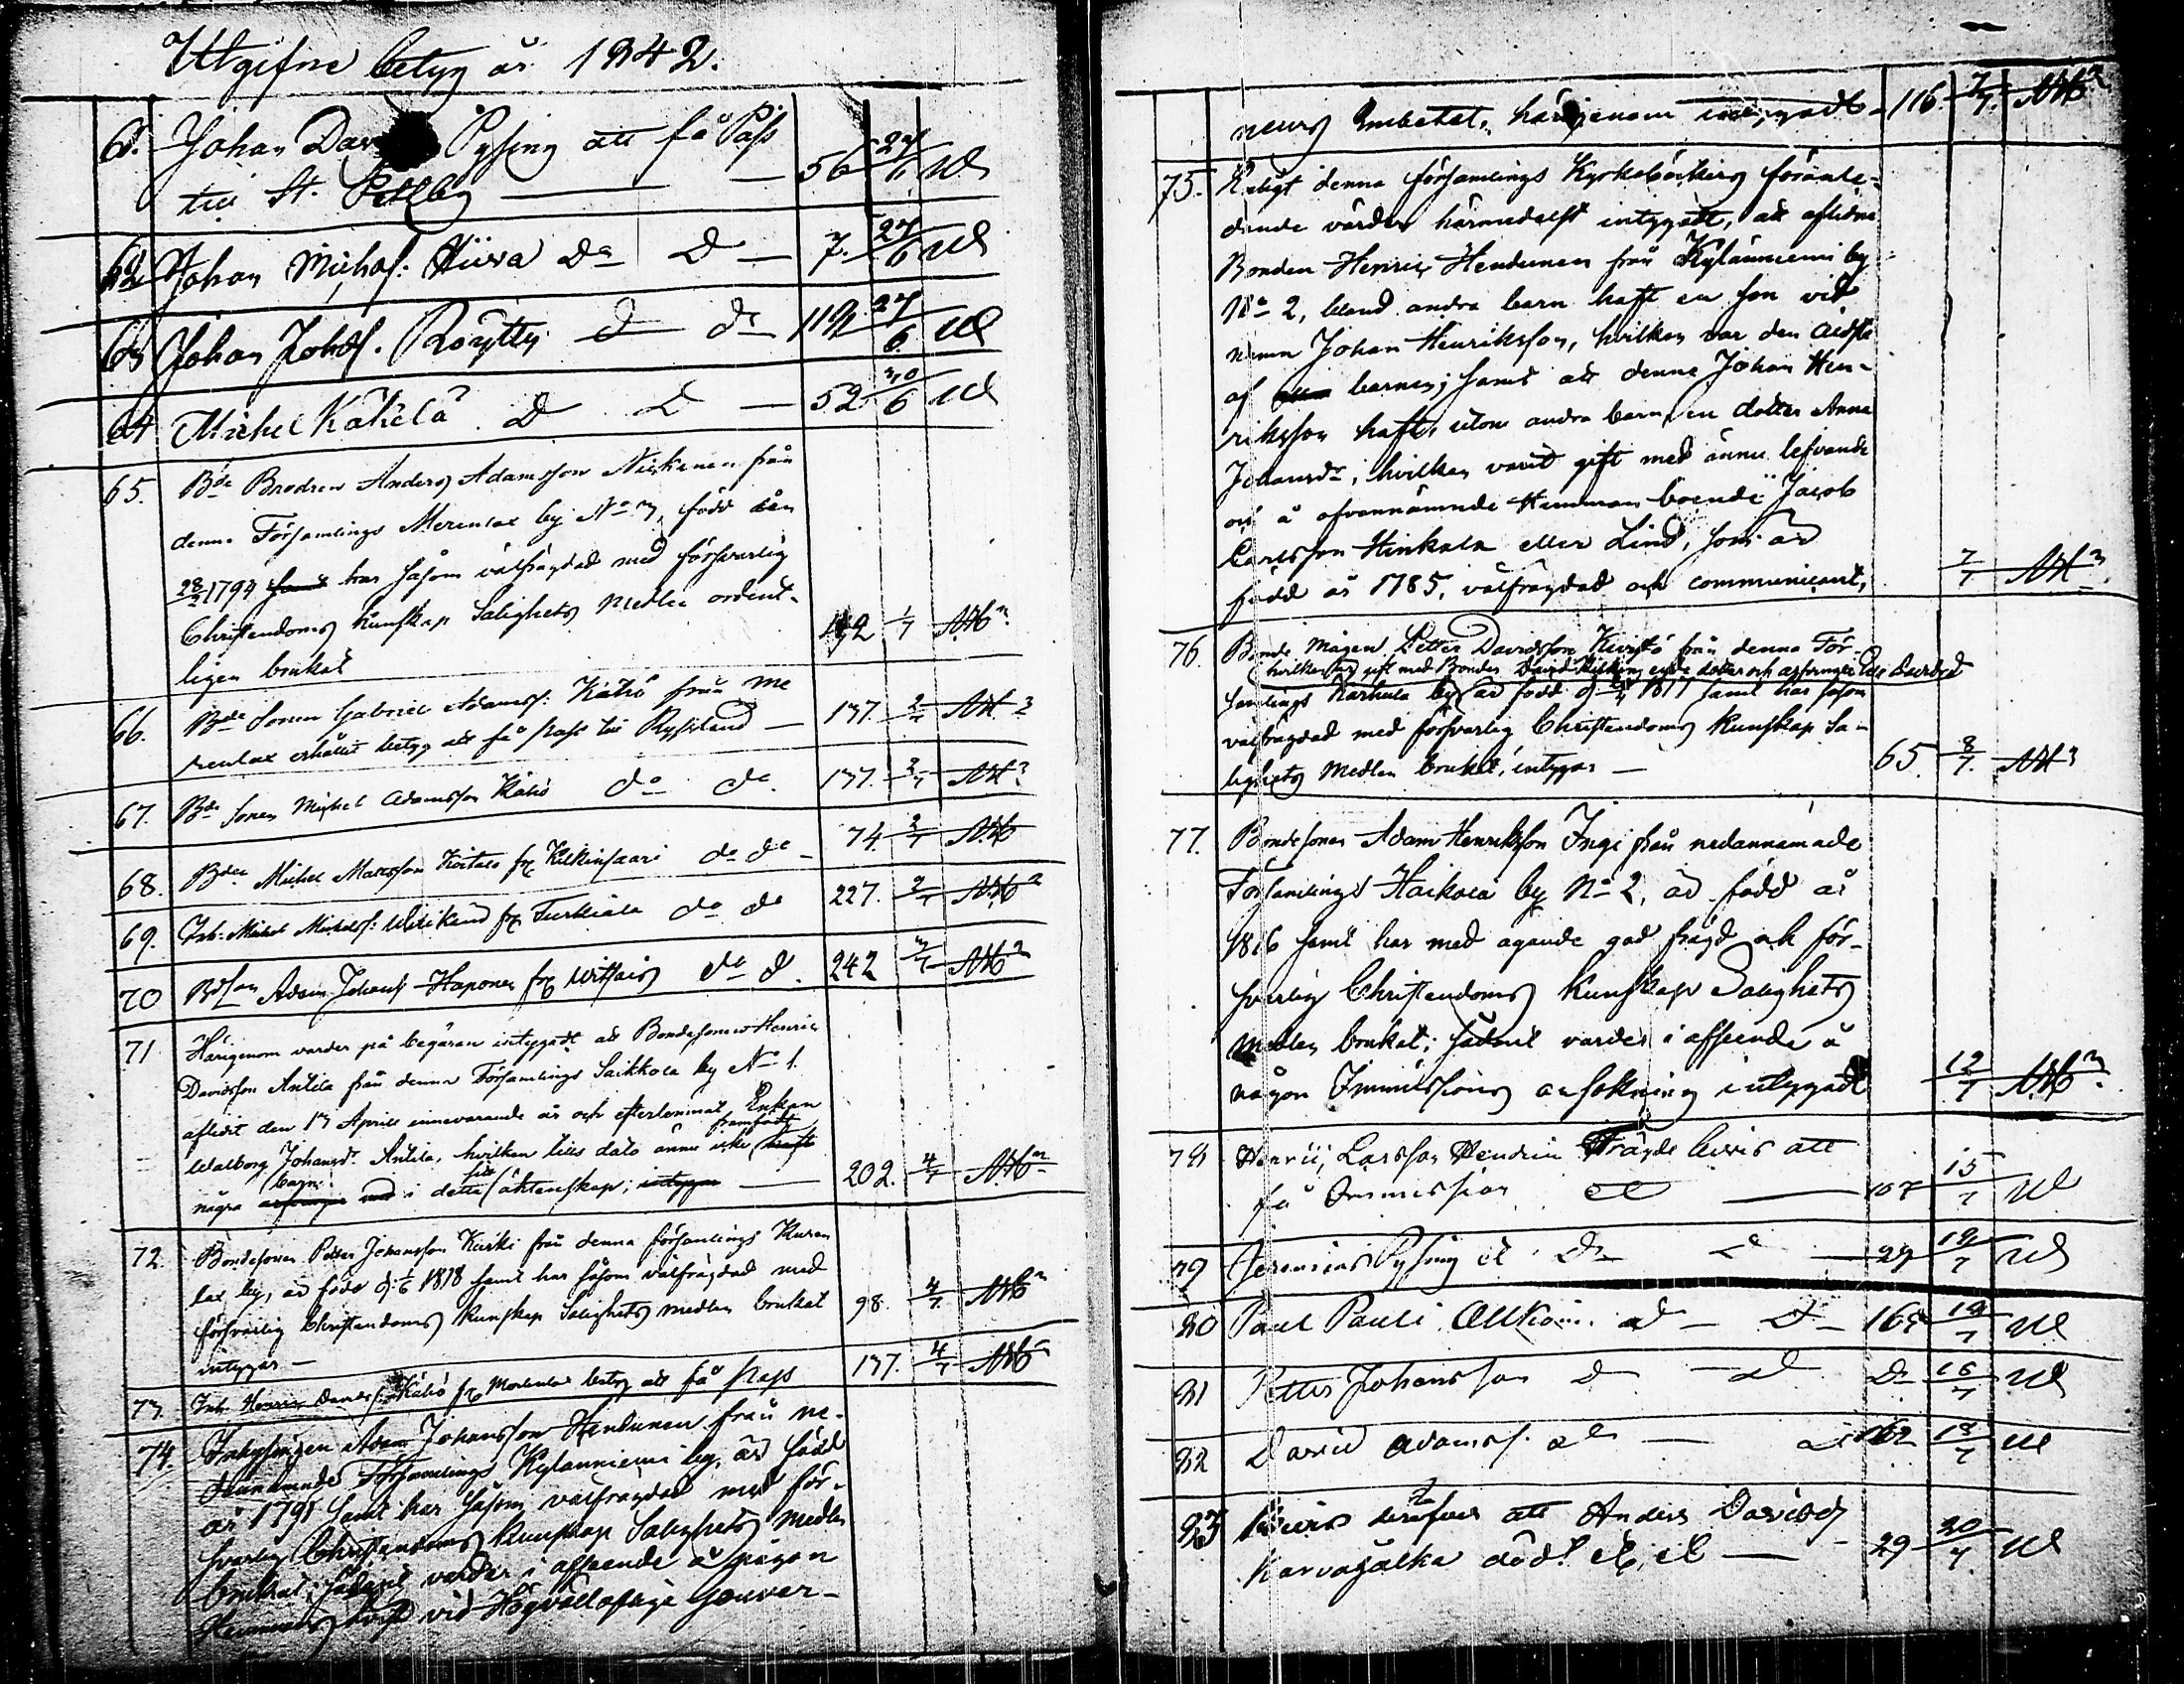 Utgifne betyg år 1842.
61. Johan Pyssing att få Pass
till St. Petbg — 56 27/6
62 Johan Michaels: Hiiva Do D — 7. 27/6
63 Johan Johds. Röytty d do 112 27/6
64 Michel Kähelä D D — 52 30/6
65. Bde Brodren Anders Adamsson Niskanen från
denna Församlings Merenlax by No 3, född den
28/2 1794 har såsom välfrägdad med försvarlig
Christendoms kunskap Salighets medlen ordent-
ligen brukat 142 1/7
66. Bde Sonen Gabriel Adamss: Kähö från Me
renlax erhållit betyg att få pass till Ryssland — 137. 2/7
67. Bde Sonen Michel Adamsson Kähö do do. 137. 2/7
68. Bden Michel Matsson Koitala frn Kilkinsaari do do — 74. 2/7
69. Inh. Michel Michelss: frn Turkiala do do 227. 2/7
70 Bdson Adam Johanss Haponen frn do d. 242 3/7
71 Härigenom varder på begäran intygadt att Bondesonen Henric
Davidsson Anttila från denna Församlings Saikkola by No 1.
aflidit den 13 Aprill innevarande år och efterlemnat Enkan
framfödt
Walborg Johansdr Anttila, hvilken tills dato ännu icke haft
barn sitt
några arfvingar med i detta äktenskap; intygar — 202. 4/7
72. Bondesonen Petter Johansson Kurki från denna församlings Kuren
lax by, är född d. 1/6 1818 samt har såsom välfrägdad med
försvarlig Christendoms kunskap Salighets medlen brukat 98. 4/7
intygar —
73. Inh. Henric Kähö frn Merenlax betyg att få pass 137. 4/7
74. Inhysingen Adam Johansson Hendunen från ne-
dannämnde Församlings Kylänniemi by, är född
år 1791 samt har såsom välfrägdad med för-
svarlig Christendoms kunskap Salighets medlen
brukat; sådant varder i afseende å någon
Hemmans vid Högvälloflige Gouver-
neurs Embetet, härigenom intygadt — 116. 7/7.
75. Enligt denna församlings Kyrkoböckers föranle-
dande varder härmedelst intygadt, att aflidne
Bonden Henric Hendunen från Kylänniemi by
No 2, bland andra barn haft en son vid
namn Johan Henriksson, hvilken var den äldsta
af barnen; samt att denne Johan Hen-
riksson haft, utom andra barn, en dotter Anna
Johansdr, hvilken varit gift med ännu lefvande
och å ofvannämnde Hemman boende Jacob
Carlsson Hinkala eller Lind, som är
född år 1785, välfrägdad och communicant, 7/7
76. Bonde Mågen Petter Davidsson Kivistö från denna För-
hvilken är gift med Bonden David dotter och arfvinge
samlings Karhula by, är född 1817 samt har såsom
välfrägdad med försvarlig Christendoms kunskap Sa-
lighets medlen brukat, intygar — 65. 8/7.
77. Bondesonen Adam Henriksson Ingi från nedannämnde
Församlings Haikola by No 2, är född år
1816 samt har med ägande god frägd och för-
svarlig Christendoms kunskap Salighets
medlen brukat; sådant varder i afseende å
någon Immissions ansökning intygadt 12/7
78 Henric Larsson Hendun Frägde bevis att
få Immission — 107 15/7
79 Jeremias Pyssing Do — 29 18/7
80 Paul Pauli Do — 164 18/7
81 Petter Johansson D — D 18/7
82 David Adamss. do — 162 18/7
83 Bevis att Anders Davidss
Karvasalka död — 29 20/7